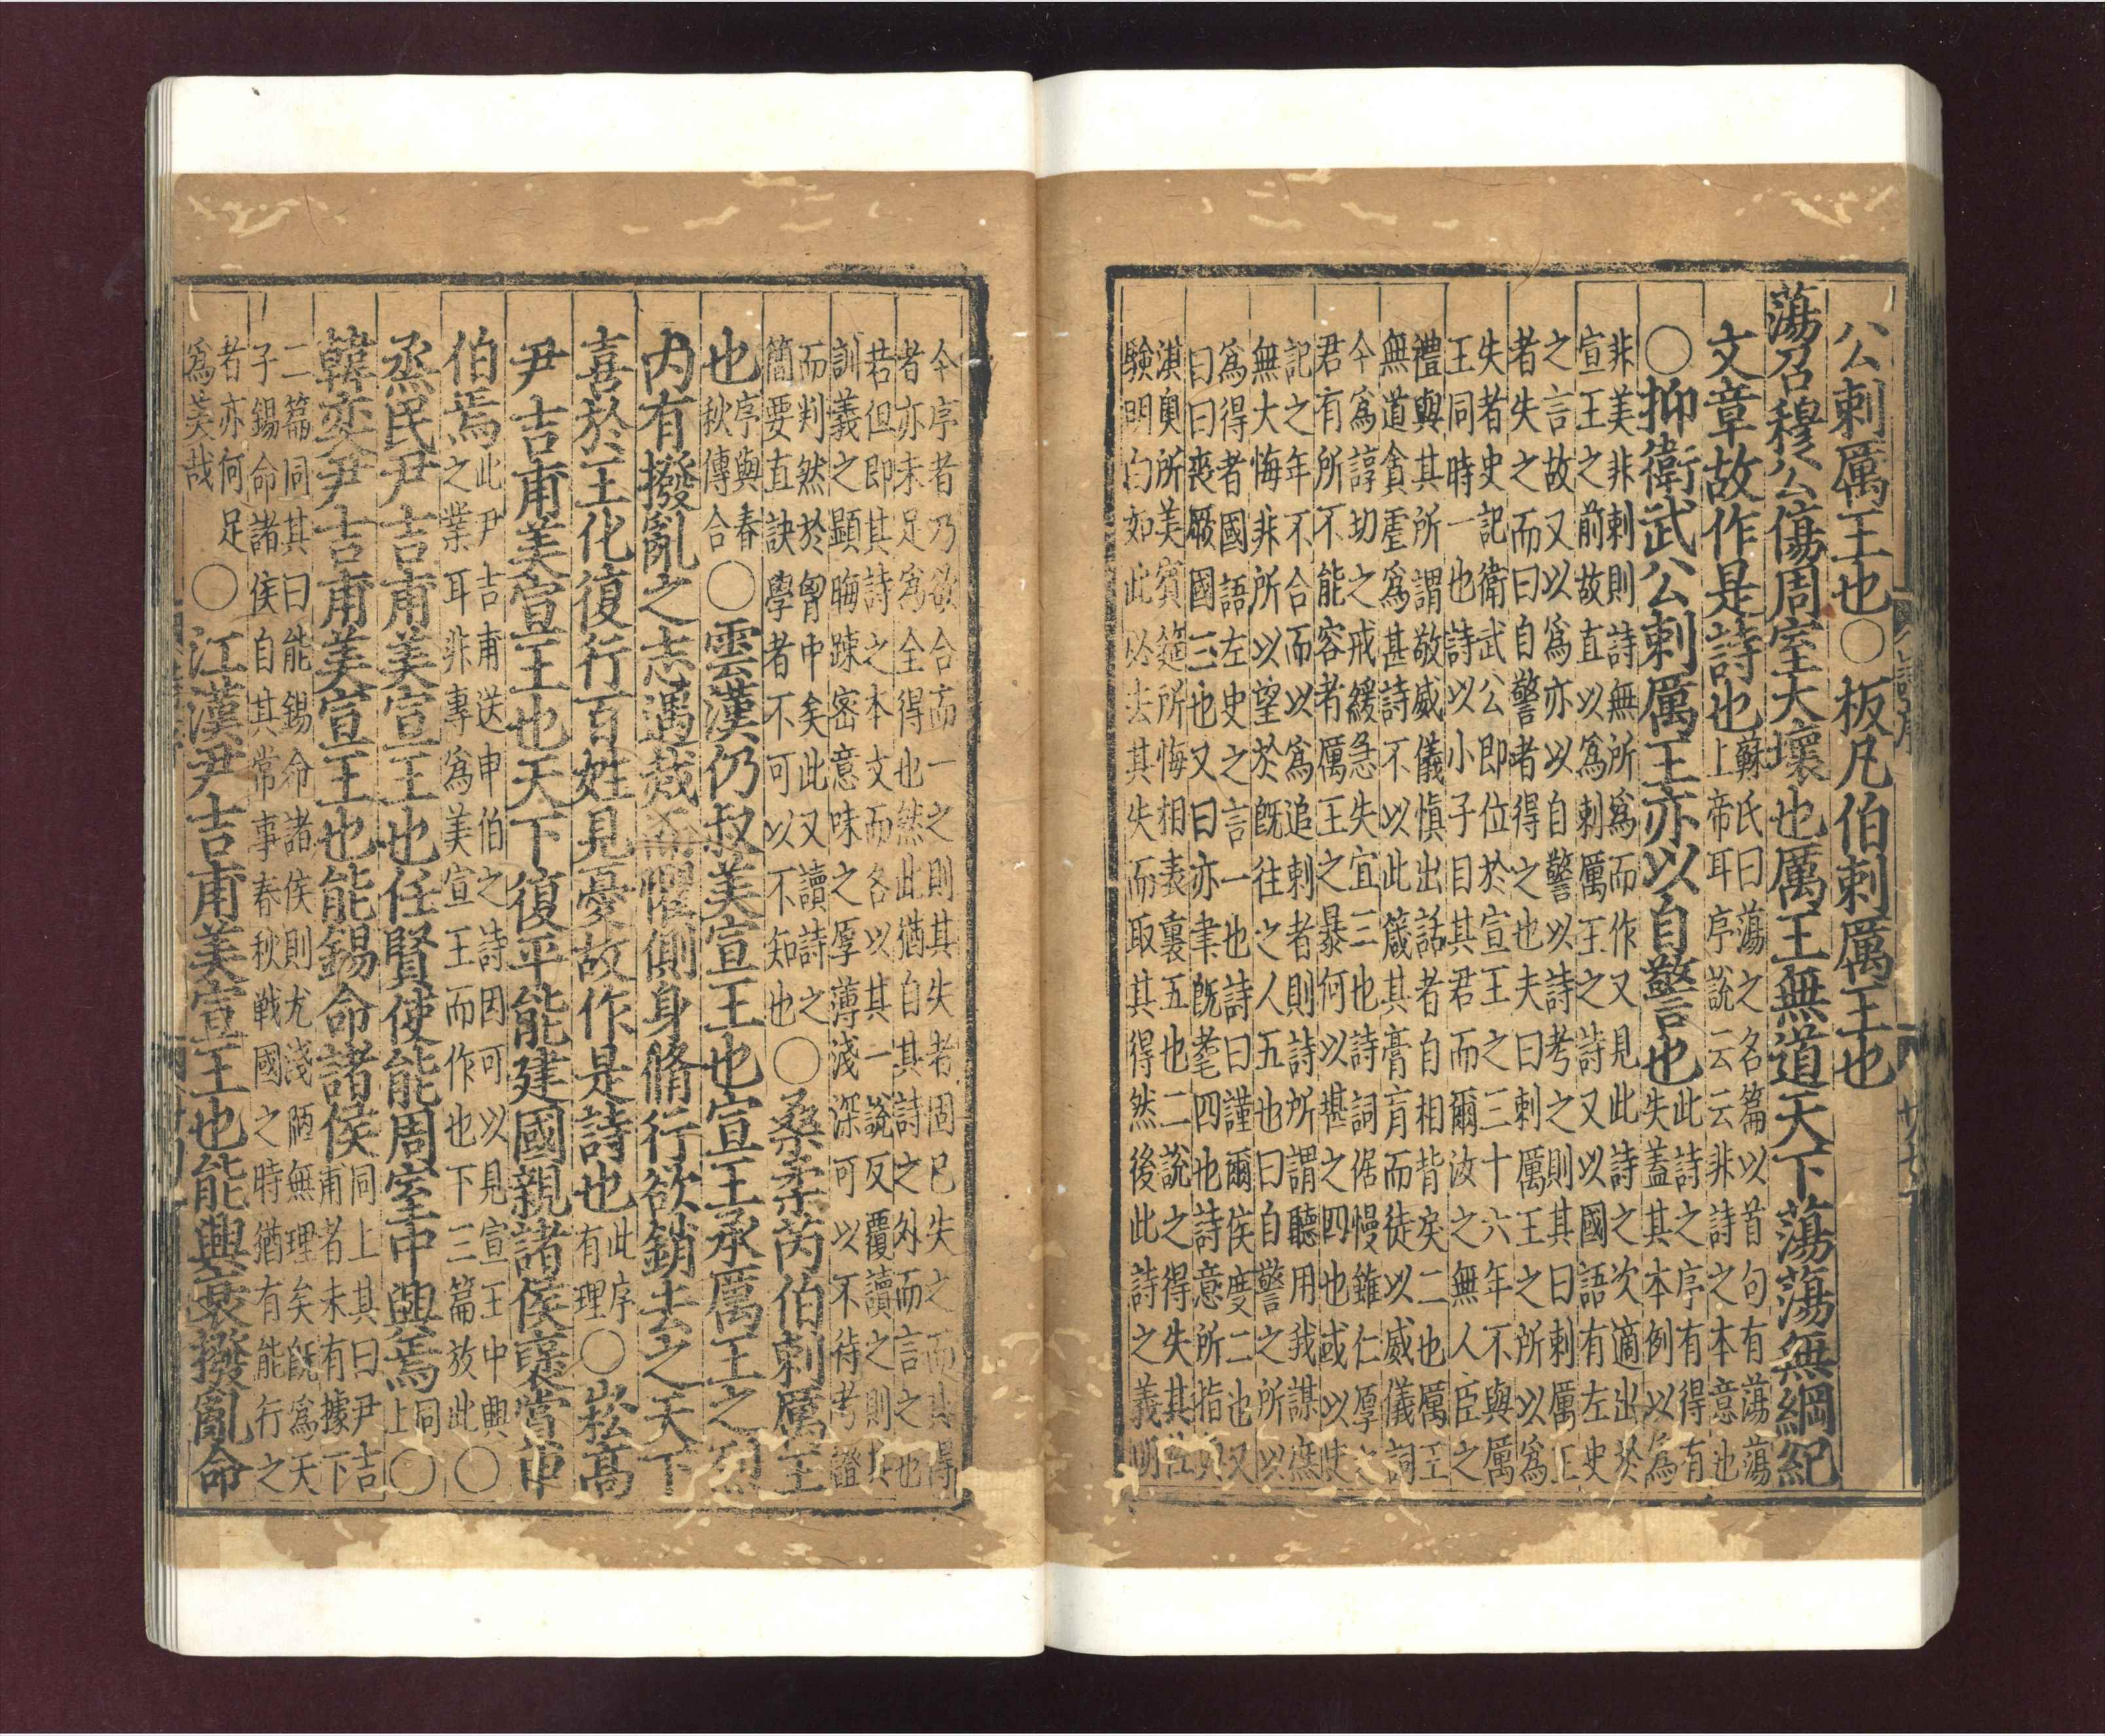 公刺厲王也○板凡伯刺厲王也
蕩召穆公傷周室大壞也厲王無道天下蕩蕩無綱紀
文章故作是詩也
蘇氏曰蕩之名篇以首句有蕩蕩
上帝耳序說云云非詩之本意也
○抑衛武公刺厲王亦以自警也
此詩之序有得有
失蓋其本例以爲
非美非刺則詩無所爲而作又見此詩之次適出於
宣王之前故直以爲刺厲王之詩又以國語有左史
之言故又以爲亦以自警以詩考之則其曰刺厲王
者失之而曰自警者得之也夫曰刺厲王之所以爲
失者史記衛武公即位於宣王之三十六年不與厲
王同時一也詩以小子目其君而爾汝之無人臣之
禮與其所謂敬威儀慎出話者自相背戾二也厲王
無道貪虐爲甚詩不以此箴其膏肓而徒以威儀詞
令爲諄切之戒緩急失宜三也詩詞倨慢雖仁厚之
君有所不能容者厲王之暴何以堪之四也或以史
記之年不合而以爲追刺者則詩所謂聽用我謀庶
無大悔非所以望於既往之人五也曰自警之所以
爲得者國語左史之言一也詩曰謹爾侯度二也又
曰曰喪厥國三也又曰亦聿既耄四也詩意所指與
淇奧所美賓筵所悔相表裏五也二說之得失其佐
驗明白如此必去其失而取其得然後此詩之義明
今序者乃欲合而一之則其失者固已失之而其得
者亦未足爲全得也然此猶自其詩之外而言之也
若但即其詩之本文而各以其一說反覆讀之則其
訓義之顯晦踈密意味之厚薄淺深可以不待考證
而判然於胷中矣此又讀詩之
簡要直訣學者不可以不知也
○桑柔芮伯刺厲王
也
序與春
秋傳合
○雲漢仍叔美宣王也宣王承厲王之烈
內有撥亂之志遇烖而懼側身脩行欲銷去之天下
喜於王化復行百姓見憂故作是詩也
此序
有理
○崧高
尹吉甫美宣王也天下復平能建國親諸侯襃賞申
伯焉
此尹吉甫送申伯之詩因可以見宣王中興
之業耳非專爲美宣王而作也下三篇放此
○
烝民尹吉甫美宣王也任賢使能周室中興焉
同
上
○
韓奕尹吉甫美宣王也能錫命諸侯
同上其曰尹吉
甫者未有據下
二篇同其曰能錫命諸侯則尤淺陋無理矣既爲天
子錫命諸侯自其常事春秋戰國之時猶有能行之
者亦何足
爲美哉
○江漢尹吉甫美宣王也能興衰撥亂命